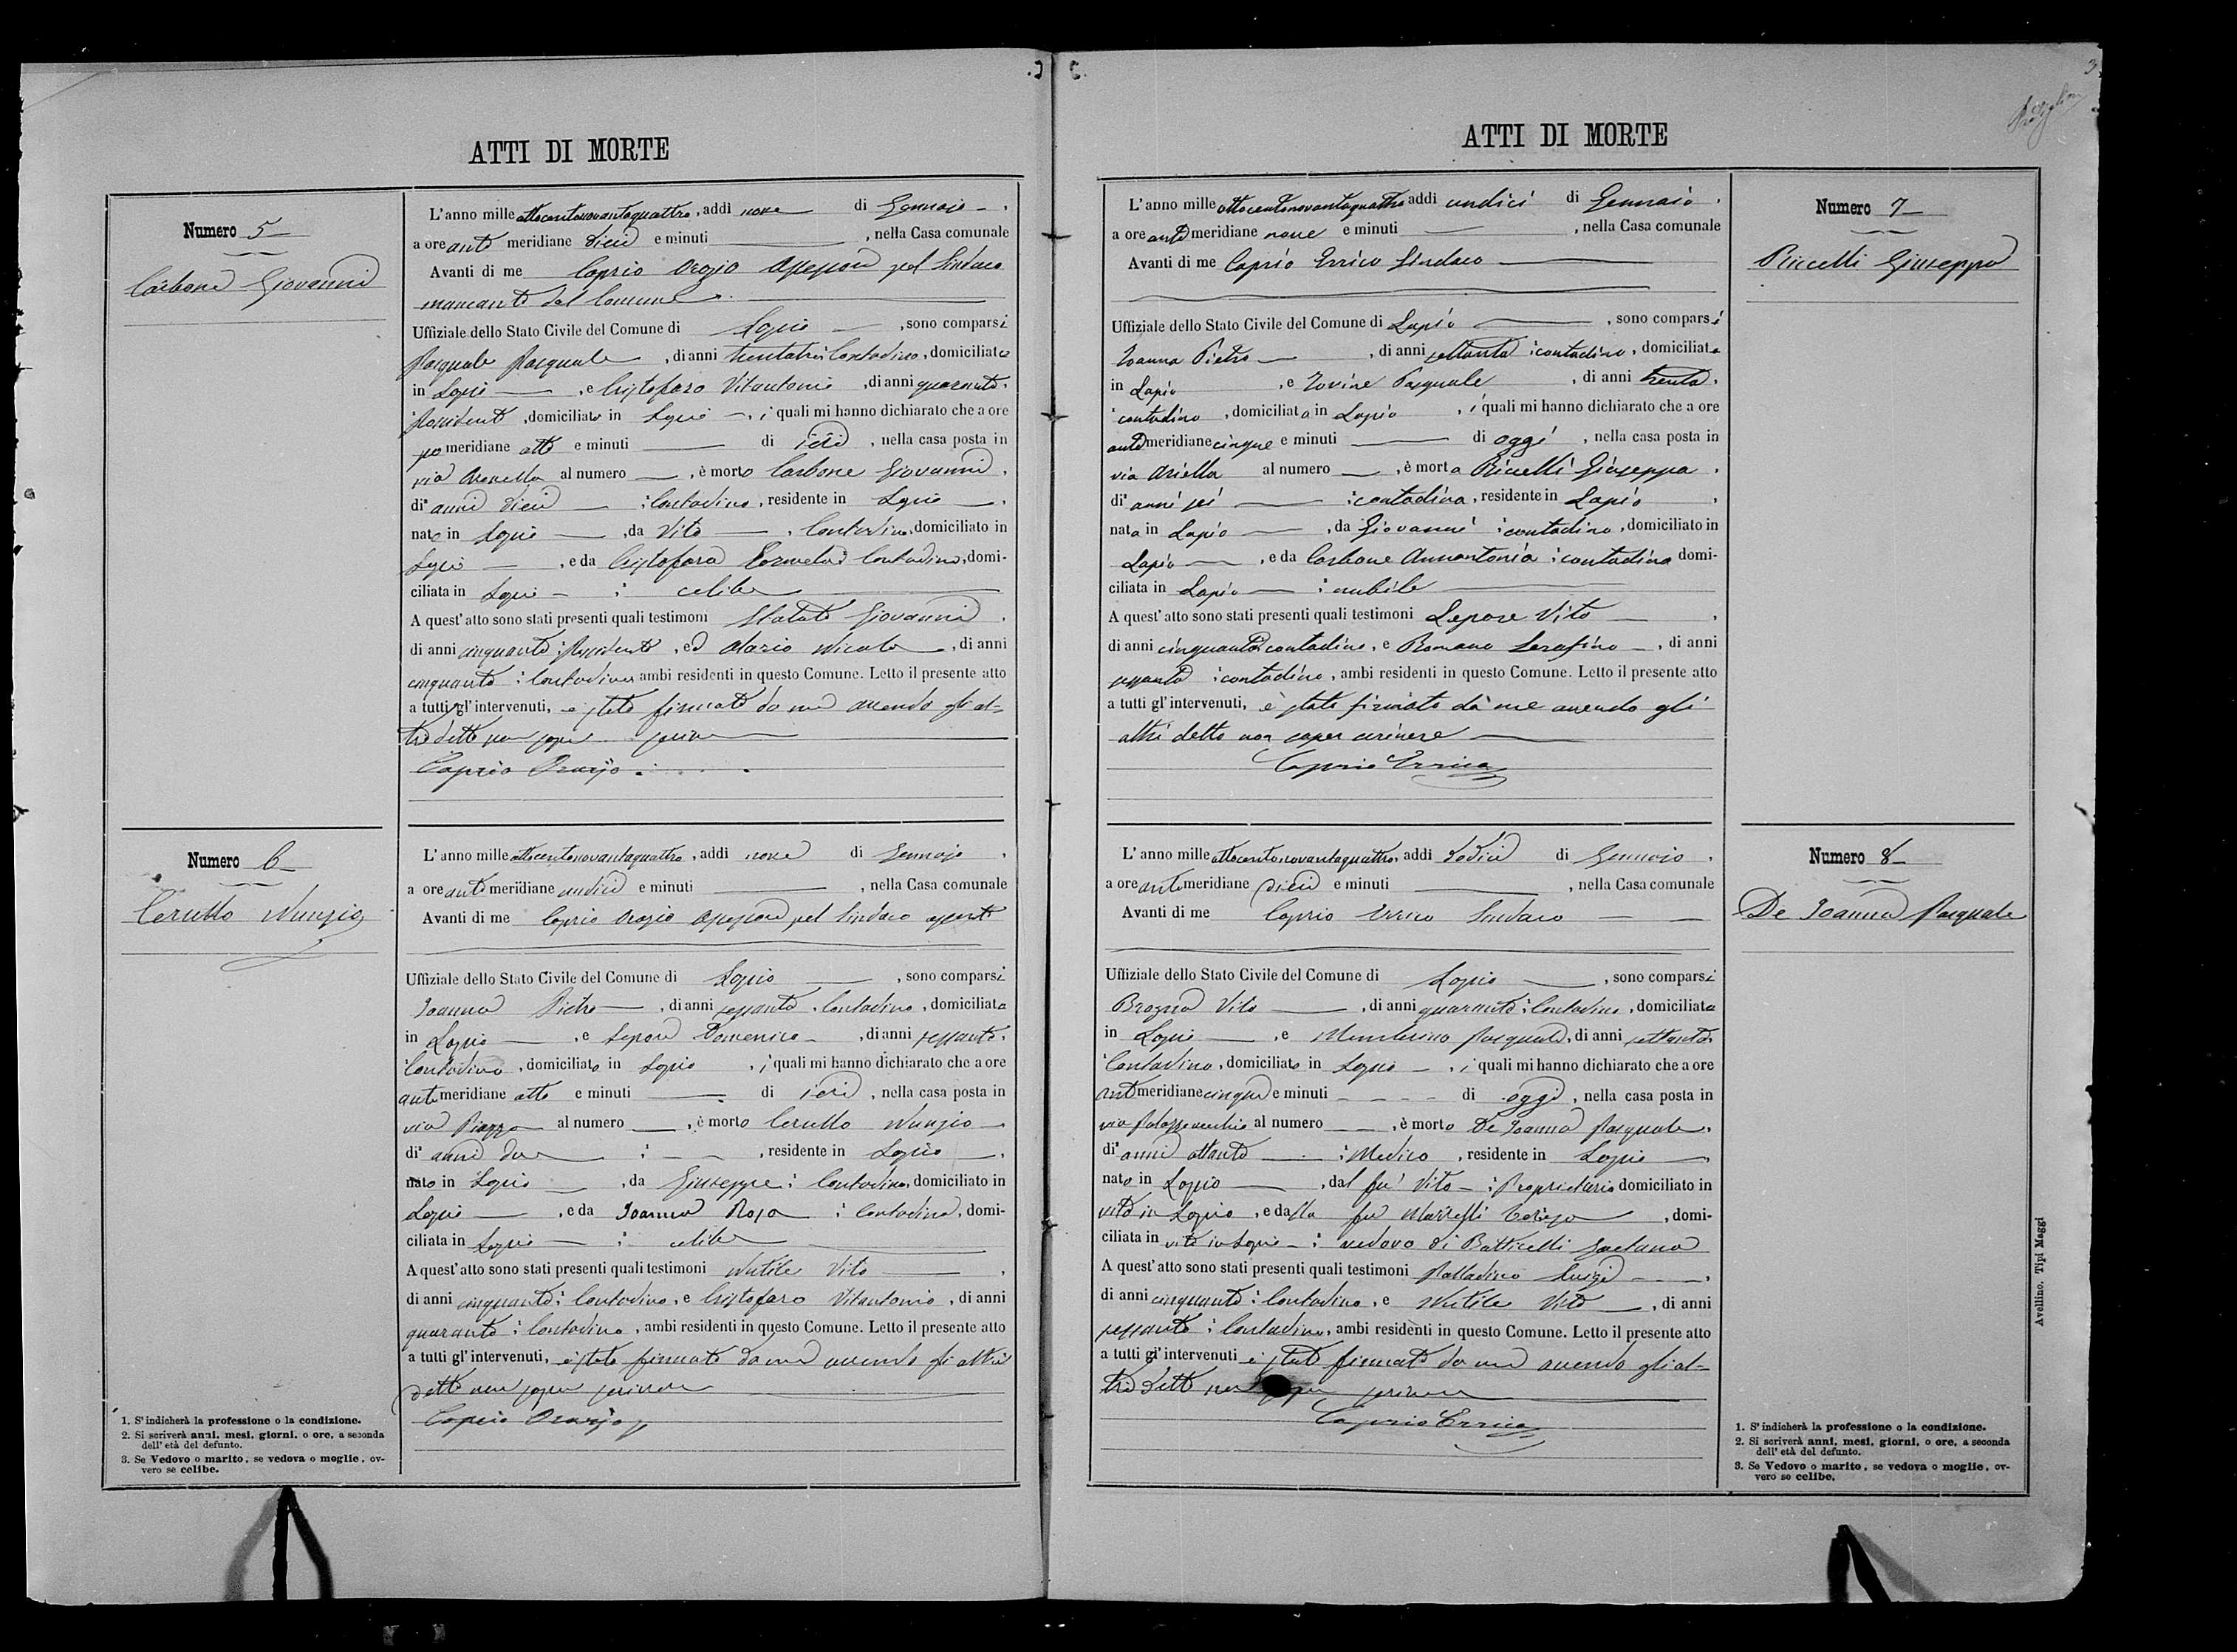 3
ATTI DI MORTE
Numero 5
Carbone Giovanni
L'anno mille ottocentonovantaquattro, addì nove di Gennajo
a ore anti meridiane dieci e minuti , nella Casa comunale
Avanti di me Caprio Orazio Assessore pel Sindaco
mancante del Comune
Uffiziale dello Stato Civile del Comune di Lapio , sono comparsi
Pasquale Pasquale , di anni trentatrè Contadino, domiciliato
in Lapio , e Cristofaro Vitantonio , di anni quaranta,
Possidente , domiciliato in Lapio , i quali mi hanno dichiarato che a ore
po meridiane otto e minuti di ieri , nella casa posta in
via al numero , è morto Carbone Giovanni ,
di anni dieci Contadino, residente in Lapio ,
nato in Lapio , da Vito , Contadino, domiciliato in
Lapio , e da Cristofaro Contadina, domi-
ciliata in Lapio celibe
A quest'atto sono stati presenti quali testimoni Giovanni ,
di anni cinquanta Possidente , ed Nicola , di anni
cinquanta Contadino, ambi residenti in questo Comune. Letto il presente atto
a tutti gl'intervenuti, è stato firmato da me avendo gli al-
tri detto non saper scrivere
Caprio Orazio
Numero 6
Cerullo Nunzio
L'anno mille ottocentonovantaquattro, addì nove di Gennajo ,
a ore anti meridiane undici e minuti , nella Casa comunale
Avanti di me Caprio Orazio Assessore pel Sindaco assente
Uffiziale dello Stato Civile del Comune di Lapio , sono comparsi
Joanna Pietro , di anni sessanta , Contadino , domiciliato
in Lapio , e Lepore Domenico , di anni sessanta,
Contadino , domiciliato in Lapio , i quali mi hanno dichiarato che a ore
anti meridiane otto e minuti di ieri , nella casa posta in
via Piazza al numero , è morto Cerullo Nunzio
di anni due , residente in Lapio ,
nato in Lapio , da Giuseppe Contadino, domiciliato in
Lapio , e da Joanna Rosa Contadina, domi-
ciliata in Lapio celibe
A quest'atto sono stati presenti quali testimoni Nutile Vito ,
di anni cinquanta Contadino, e Cristofaro Vitantonio , di anni
quaranta Contadino , ambi residenti in questo Comune. Letto il presente atto
a tutti gl'intervenuti, è stato firmato da me avendo gli altri
detto non saper scrivere
Caprio Orazio
1. S'indicherà la professione o la condizione.
2. Si scriverà anni, mesi, giorni, o ore, a seconda
dell'età del defunto.
3. Se Vedovo o marito, se vedova o moglie, ov-
vero se celibe.
ATTI DI MORTE
Numero 7
Giuseppa
L'anno mille ottocentonovantaquattro addì undici di Gennaio ,
a ore anti meridiane nove e minuti , nella Casa comunale
Avanti di me Caprio Errico Sindaco
Uffiziale dello Stato Civile del Comune di Lapio , sono comparsi
Joanna Pietro , di anni settanta contadino, domiciliato
in Lapio , e Iovine Pasquale , di anni trenta,
contadino , domiciliato in Lapio , i quali mi hanno dichiarato che a ore
anti meridiane cinque e minuti di oggi , nella casa posta in
via Ariella al numero , è morta Giuseppa ,
di anni sei contadina, residente in Lapio ,
nata in Lapio , da Giovanni contadino, domiciliato in
Lapio , e da Carbone Annantonia contadina domi-
ciliata in Lapio nubile
A quest'atto sono stati presenti quali testimoni Lepore Vito ,
di anni cinquanta contadino, e Romano Serafino , di anni
sessanta contadino, ambi residenti in questo Comune. Letto il presente atto
a tutti gl'intervenuti, è stato firmato da me avendo gli
altri detto non saper scrivere
Caprio Errico
Numero 8
De Joanna Pasquale
L'anno mille ottocentonovantaquattro, addì dodici di Gennaio ,
a ore anti meridiane dieci e minuti , nella Casa comunale
Avanti di me Caprio Errico Sindaco
Uffiziale dello Stato Civile del Comune di Lapio , sono comparsi
Brogna Vito , di anni quaranta Contadino, domiciliato
in Lapio , e Pasquale, di anni settanta,
Contadino, domiciliato in Lapio , i quali mi hanno dichiarato che a ore
anti meridiane cinque e minuti di oggi , nella casa posta in
via al numero , è morto De Joanna Pasquale,
di anni ottanta Medico , residente in Lapio ,
nato in Lapio , dal fu Vito Proprietario domiciliato in
vita in Lapio , e dalla fu , domi-
ciliata in vita in Lapio vedovo di Batticelli Gaetana
A quest'atto sono stati presenti quali testimoni Palladino Luigi ,
di anni cinquanta Contadino, e Nutile Vito , di anni
sessanta Contadino, ambi residenti in questo Comune. Letto il presente atto
a tutti gl'intervenuti è stato firmato da me avendo gli al-
tri detto non saper scrivere
Caprio Errico
1. S'indicherà la professione o la condizione.
2. Si scriverà anni, mesi, giorni, o ore, a seconda
dell'età del defunto.
3. Se Vedovo o marito, se vedova o moglie, ov-
vero se celibe.
Avellino. Tipi Maggi